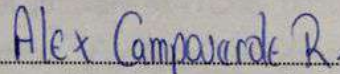 Alex Campoverde R.